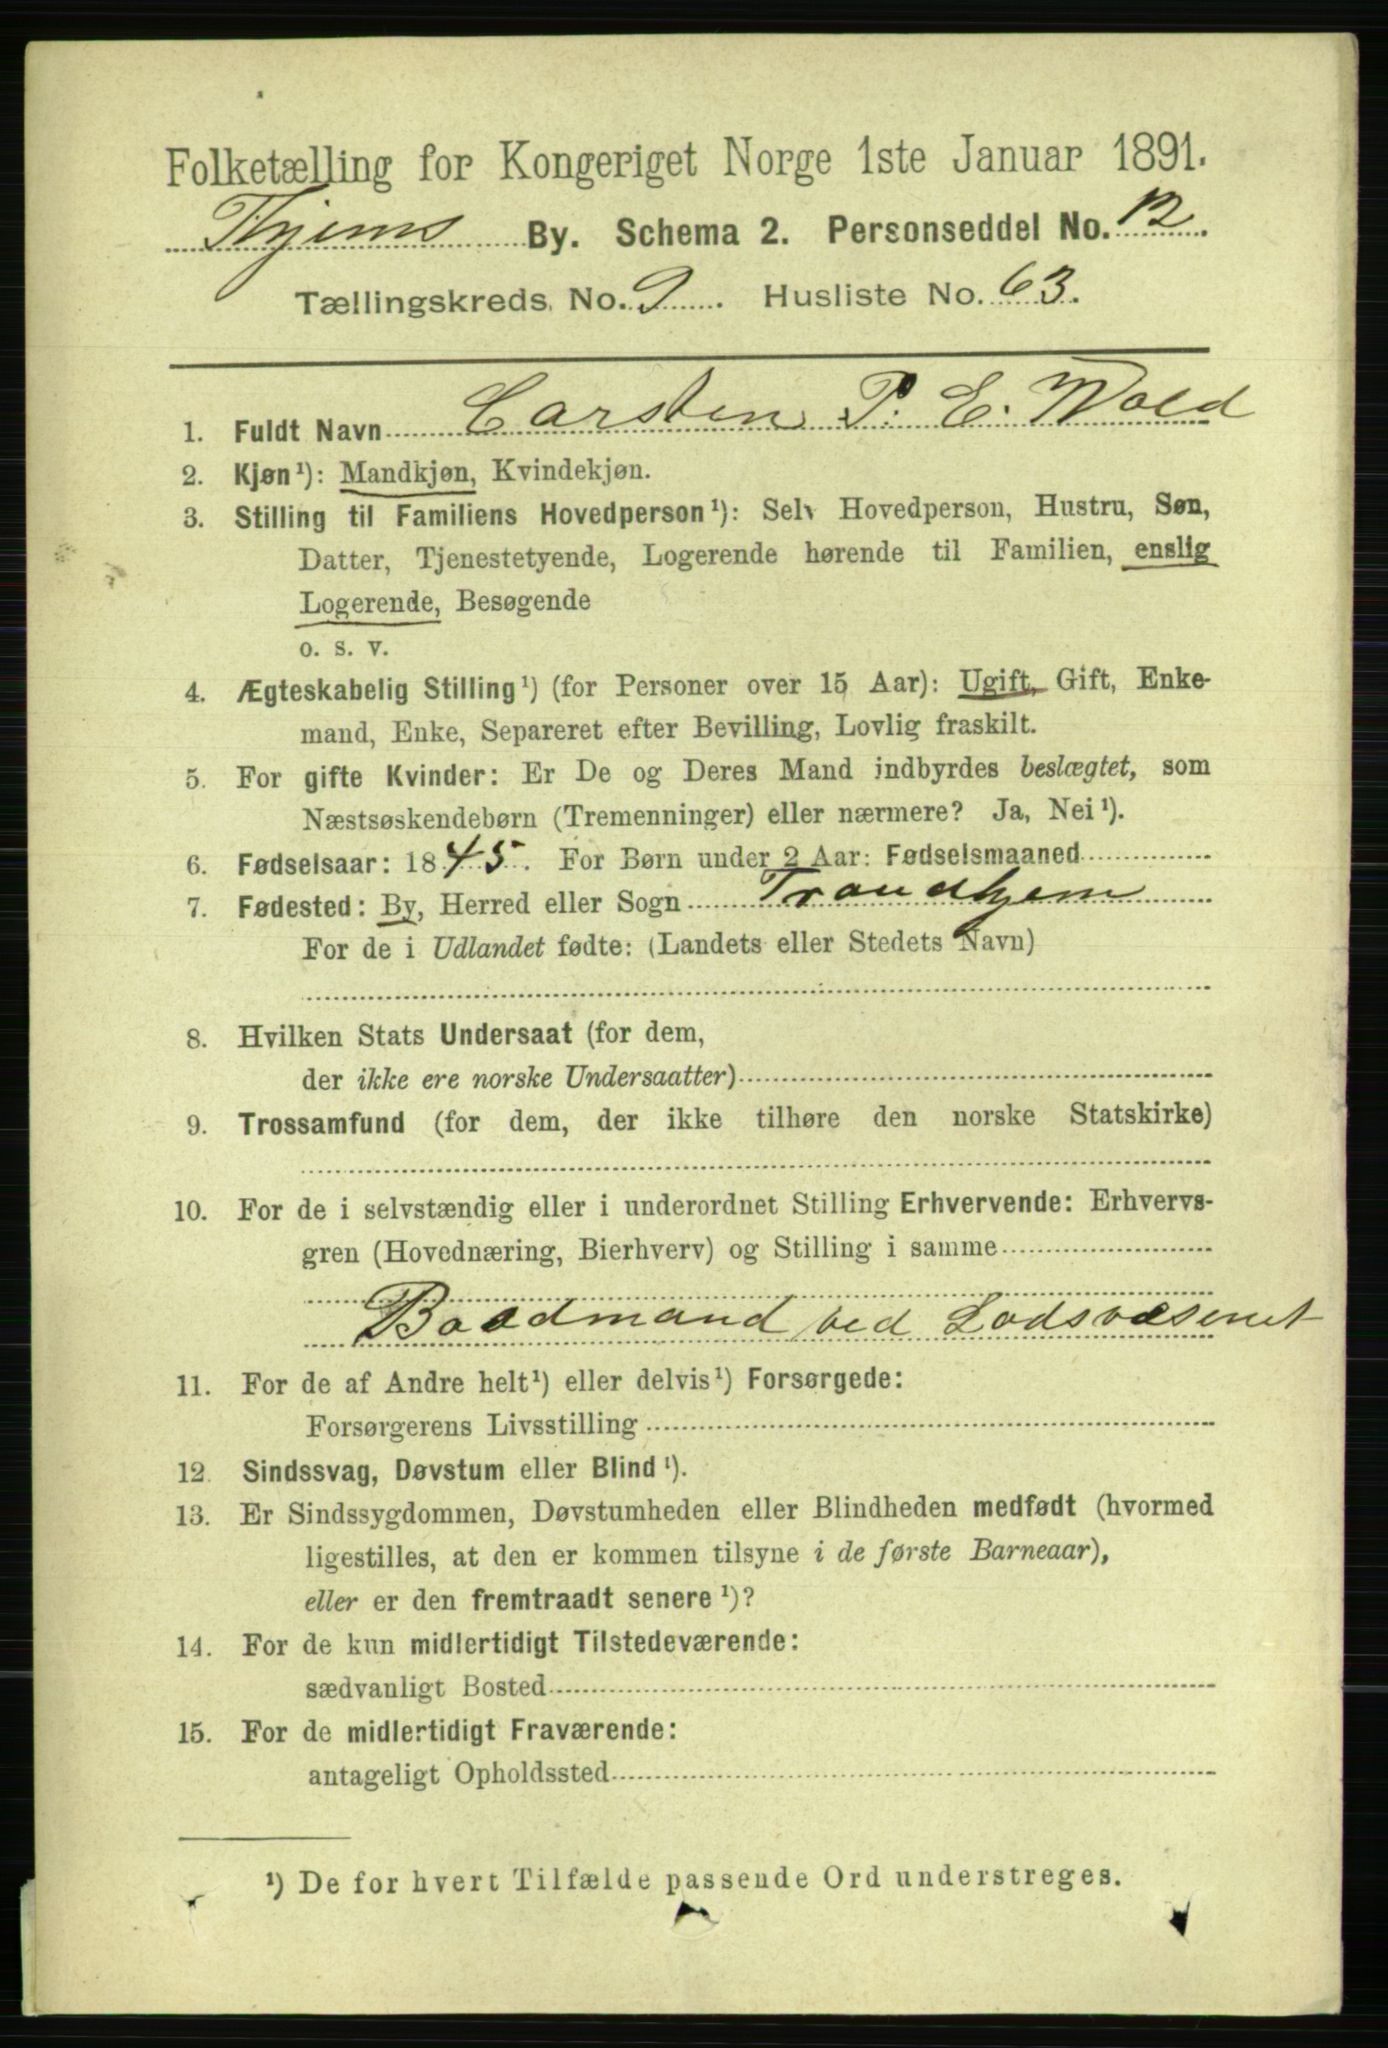 Folketælling for Kongeriget Norge 1ste Januar 1891.
Thjems By. Schema 2. Personseddel No. 12.
Tællingskreds No. 9. Husliste No. 63.
1. Fuldt Navn Carsten P. E. Wold
2. Kjøn¹): Mandkjøn, Kvindekjøn.
3. Stilling til Familiens Hovedperson¹): Selv Hovedperson, Hustru, Søn,
Datter, Tjenestetyende, Logerende hørende til Familien, enslig
Logerende, Besøgende
o. s. v.
4. Ægteskabelig Stilling¹) (for Personer over 15 Aar): Ugift, Gift, Enke-
mand, Enke, Separeret efter Bevilling, Lovlig fraskilt.
5. For gifte Kvinder: Er De og Deres Mand indbyrdes beslægtet, som
Næstsøskendebørn (Tremenninger) eller nærmere? Ja, Nei¹).
6. Fødselsaar: 1845. For Børn under 2 Aar: Fødselsmaaned
7. Fødested: By, Herred eller Sogn Trondhjem
For de i Udlandet fødte: (Landets eller Stedets Navn)
8. Hvilken Stats Undersaat (for dem,
der ikke ere norske Undersaatter)
9. Trossamfund (for dem, der ikke tilhøre den norske Statskirke)
10. For de i selvstændig eller i underordnet Stilling Erhvervende: Erhvervs-
gren (Hovednæring, Bierhverv) og Stilling i samme
Baadmand ved Lodsvæsenet
11. For de af Andre helt¹) eller delvis¹) Forsørgede:
Forsørgerens Livsstilling
12. Sindssvag, Døvstum eller Blind¹).
13. Er Sindssygdommen, Døvstumheden eller Blindheden medfødt (hvormed
ligestilles, at den er kommen tilsyne i de første Barneaar),
eller er den fremtraadt senere¹)?
14. For de kun midlertidigt Tilstedeværende:
sædvanligt Bosted
15. For de midlertidigt Fraværende:
antageligt Opholdssted
¹) De for hvert Tilfælde passende Ord understreges.